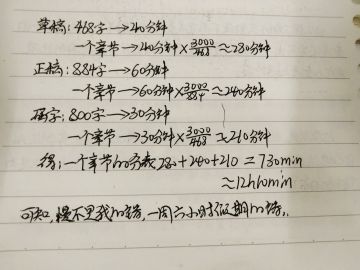 草稿：468字→40分钟
一个章节→40分钟×3000/468≈280分钟
正稿：884字→60分钟
一个章节→60分钟×3000/884≈240分钟
码字：800字→30分钟
一个章节→30分钟×3000/468≈210分钟
得：一个章节的分表280+240+210=730min
≈12h10min
可知，慢不是我的错，一周六小时假期的错。